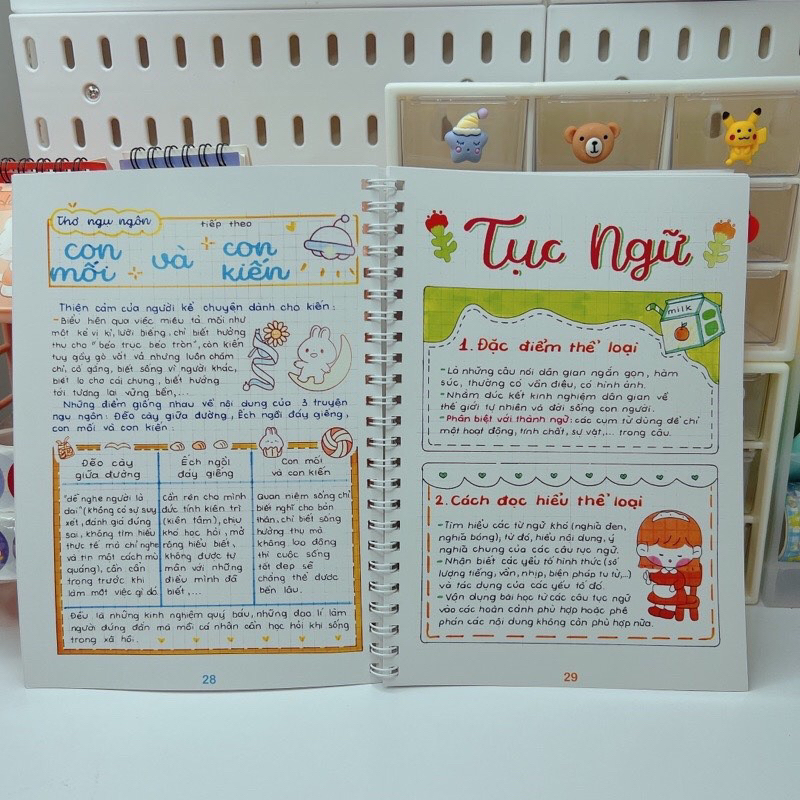 Thơ ngụ ngôn
tiếp theo
con mối và con kiến
Thiện cảm của người kể chuyện dành cho kiến:
- Biểu hiện qua việc miêu tả mối như
một kẻ vị kỉ, lười biếng, chỉ biết hưởng
thụ cho "béo trục béo tròn", còn kiến
tuy gầy gò vất vả nhưng luôn chăm
chỉ, cố gắng, biết sống vì người khác,
biết lo cho cái chung, biết hướng
tới tương lai vững bền,...
Những điểm giống nhau về nội dung của 3 truyện
ngụ ngôn: Đẽo cày giữa đường, Ếch ngồi đáy giếng,
con mối và con kiến
Đẽo cày
giữa đường
"dễ nghe người là
dại" (không có sự suy
xét, đánh giá đúng
sai, không tìm hiểu
thực tế mà chỉ nghe
và tin một cách mù
quáng), cần cân
trọng trước khi
làm một việc gì đó.
Ếch ngồi
đáy giếng
cần rèn cho mình
đức tính kiên trì
(kiên tâm), chịu
khó học hỏi, mở
rộng hiểu biết,
không được tự
mãn với những
điều mình đã
biết,...
Con mối
và con kiến
Quan niệm sống chỉ
biết nghĩ cho bản
thân, chỉ biết sống
hưởng thụ mà
không lao động
thì cuộc sống
tốt đẹp sẽ
chẳng thể được
bền lâu.
Đều là những kinh nghiệm quý báu, những đạo lí làm
người đúng đắn mà mỗi cá nhân cần học hỏi khi sống
trong xã hội.
28
Tục Ngữ
milk
1. Đặc điểm thể loại
- Là những câu nói dân gian ngắn gọn, hàm
súc, thường có vần điệu, có hình ảnh.
- Nhằm đúc kết kinh nghiệm dân gian về
thế giới tự nhiên và đời sống con người.
- Phân biệt với thành ngữ: các cụm từ dùng để chỉ
một hoạt động, tính chất, sự vật,... trong câu.
2. Cách đọc hiểu thể loại
- Tìm hiểu các từ ngữ khó (nghĩa đen,
nghĩa bóng), từ đó, hiểu nội dung, ý
nghĩa chung của các câu tục ngữ.
- Nhận biết các yếu tố hình thức (số
lượng tiếng, vần, nhịp, biện pháp tu từ,...)
và tác dụng của các yếu tố đó.
- Vận dụng bài học từ các câu tục ngữ
vào các hoàn cảnh phù hợp hoặc phê
phán các nội dung không còn phù hợp nữa.
29